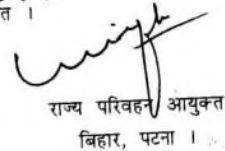 त ।
राज्य परिवहन आयुक्त
बिहार, पटना ।